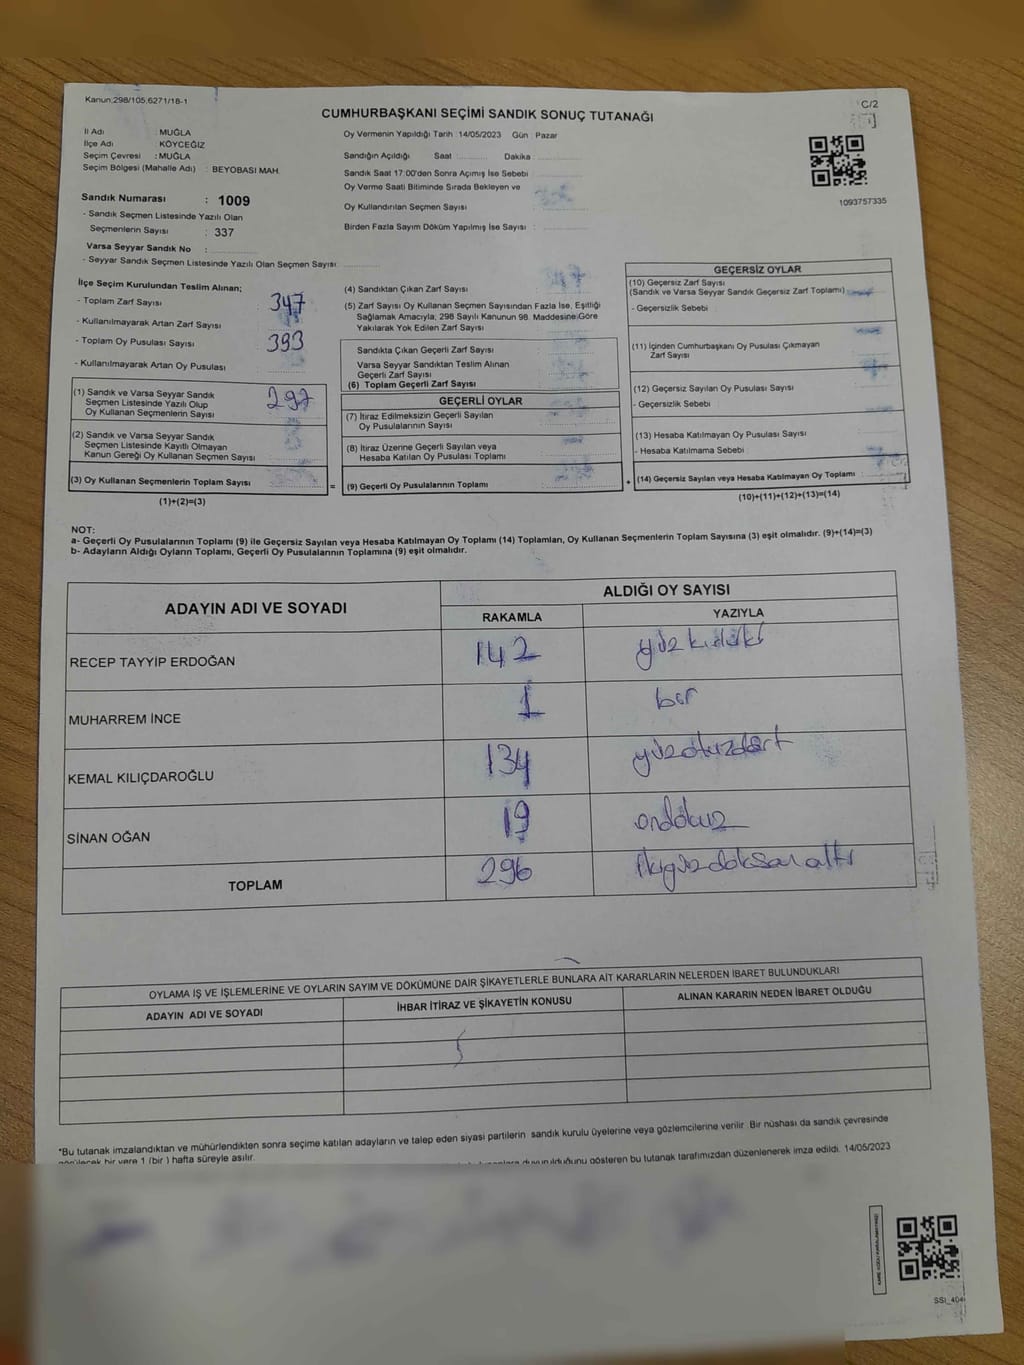 Kanun;298/105,6271/18-1
C/2
CUMHURBAŞKANI SEÇİMİ SANDIK SONUÇ TUTANAĞI
İl Adı : MUĞLA
İlçe Adı KÖYCEĞİZ
Seçim Çevresi : MUĞLA
Seçim Bölgesi (Mahalle Adı) : BEYOBASI MAH.
Oy Vermenin Yapıldığı Tarih :14/05/2023 Gün : Pazar
Sandığın Açıldığı Saat Dakika
Sandık Saat 17:00'den Sonra Açımış İse Sebebi
Oy Verme Saati Bitiminde Sırada Bekleyen ve
Oy Kullandırılan Seçmen Sayısı
Birden Fazla Sayım Döküm Yapılmış İse Sayısı :
1093757335
Sandık Numarası : 1009
- Sandık Seçmen Listesinde Yazılı Olan
Seçmenlerin Sayısı : 337
Varsa Seyyar Sandık No :
- Seyyar Sandık Seçmen Listesinde Yazılı Olan Seçmen Sayısı
İlçe Seçim Kurulundan Teslim Alınan;
- Toplam Zarf Sayısı 347
- Kullanılmayarak Artan Zarf Sayısı
- Toplam Oy Pusulası Sayısı 393
- Kullanılmayarak Artan Oy Pusulası
(1) Sandık ve Varsa Seyyar Sandık
Seçmen Listesinde Yazılı Olup
Oy Kullanan Seçmenlerin Sayısı 297
(2) Sandık ve Varsa Seyyar Sandık
Seçmen Listesinde Kayıtlı Olmayan
Kanun Gereği Oy Kullanan Seçmen Sayısı
(3) Oy Kullanan Seçmenlerin Toplam Sayısı
(1)+(2)=(3)
(4) Sandıktan Çıkan Zarf Sayısı
(5) Zarf Sayısı Oy Kullanan Seçmen Sayısından Fazla İse, Eşitliği
Sağlamak Amacıyla, 298 Sayılı Kanunun 98. Maddesine Göre
Yakılarak Yok Edilen Zarf Sayısı
Sandıkta Çıkan Geçerli Zarf Sayısı
Varsa Seyyar Sandıktan Teslim Alınan
Geçerli Zarf Sayısı
(6) Toplam Geçerli Zarf Sayısı
GEÇERLİ OYLAR
(7) İtiraz Edilmeksizin Geçerli Sayılan
Oy Pusulalarının Sayısı
(8) İtiraz Üzerine Geçerli Sayılan veya
Hesaba Katılan Oy Pusulası Toplamı
= (9) Geçerli Oy Pusulalarının Toplamı +
GEÇERSİZ OYLAR
(10) Geçersiz Zarf Sayısı
(Sandık ve Varsa Seyyar Sandık Geçersiz Zarf Toplamı)
- Geçersizlik Sebebi
(11) İçinden Cumhurbaşkanı Oy Pusulası Çıkmayan
Zarf Sayısı
(12) Geçersiz Sayılan Oy Pusulası Sayısı
- Geçersizlik Sebebi
(13) Hesaba Katılmayan Oy Pusulası Sayısı
- Hesaba Katılmama Sebebi
(14) Geçersiz Sayılan veya Hesaba Katılmayan Oy Toplamı
(10)+(11)+(12)+(13)=(14)
NOT:
a- Geçerli Oy Pusulalarının Toplamı (9) ile Geçersiz Sayılan veya Hesaba Katılmayan Oy Toplamı (14) Toplamları, Oy Kullanan Seçmenlerin Toplam Sayısına (3) eşit olmalıdır. (9)+(14)=(3)
b- Adayların Aldığı Oyların Toplamı, Geçerli Oy Pusulalarının Toplamına (9) eşit olmalıdır.
ADAYIN ADI VE SOYADI ALDIĞI OY SAYISI
RAKAMLA YAZIYLA
RECEP TAYYİP ERDOĞAN 142 yüz kırkiki
MUHARREM İNCE 1 bir
KEMAL KILIÇDAROĞLU 134 yüzotuzdört
SİNAN OĞAN 19 ondokuz
TOPLAM 296 ikiyüzdoksanaltı
OYLAMA İŞ VE İŞLEMLERİNE VE OYLARIN SAYIM VE DÖKÜMÜNE DAİR ŞİKAYETLERLE BUNLARA AİT KARARLARIN NELERDEN İBARET BULUNDUKLARI
ADAYIN ADI VE SOYADI İHBAR İTİRAZ VE ŞİKAYETİN KONUSU ALINAN KARARIN NEDEN İBARET OLDUĞU
*Bu tutanak imzalandıktan ve mühürlendikten sonra seçime katılan adayların ve talep eden siyasi partilerin sandık kurulu üyelerine veya gözlemcilerine verilir. Bir nüshası da sandık çevresinde
görülecek bir yere 1 (bir ) hafta süreyle asılır.
duyurulduğunu gösteren bu tutanak tarafımızdan düzenlenerek imza edildi. 14/05/2023